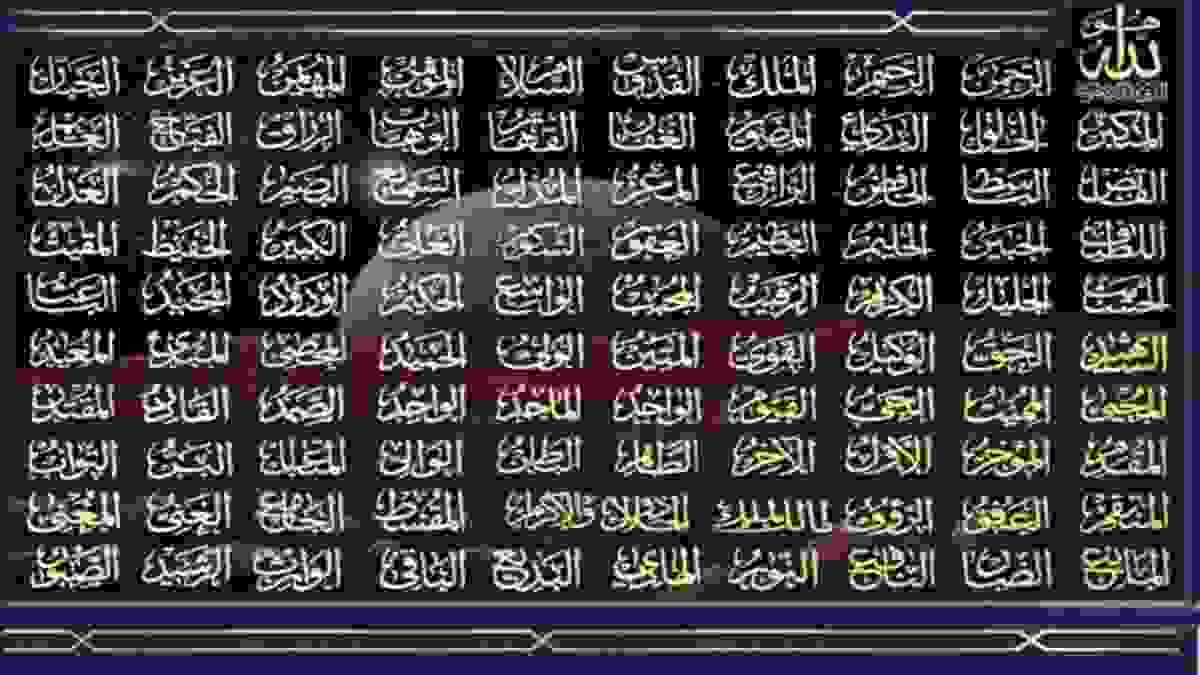 هو الله
الرحمن الرحيم الملك القدوس السلام المؤمن المهيمن العزيز الجبار
المتكبر الخالق البارئ المصور الغفار القهار الوهاب الرزاق الفتاح العليم
القابض الباسط الخافض الرافع المعز المذل السميع البصير الحكم العدل
اللطيف الخبير الحليم العظيم الغفور الشكور العلي الكبير الحفيظ المقيت
الحسيب الجليل الكريم الرقيب المجيب الواسع الحكيم الودود المجيد الباعث
الشهيد الحق الوكيل القوي المتين الولي الحميد المحصي المبدئ المعيد
المحيي المميت الحي القيوم الواجد الماجد الواحد الصمد القادر المقتدر
المقدم المؤخر الأول الآخر الظاهر الباطن الوالي المتعالي البر التواب
المنتقم العفو الرؤوف مالك الملك ذو الجلال والإكرام المقسط الجامع الغني المغني
المانع الضار النافع النور الهادي البديع الباقي الوارث الرشيد الصبور